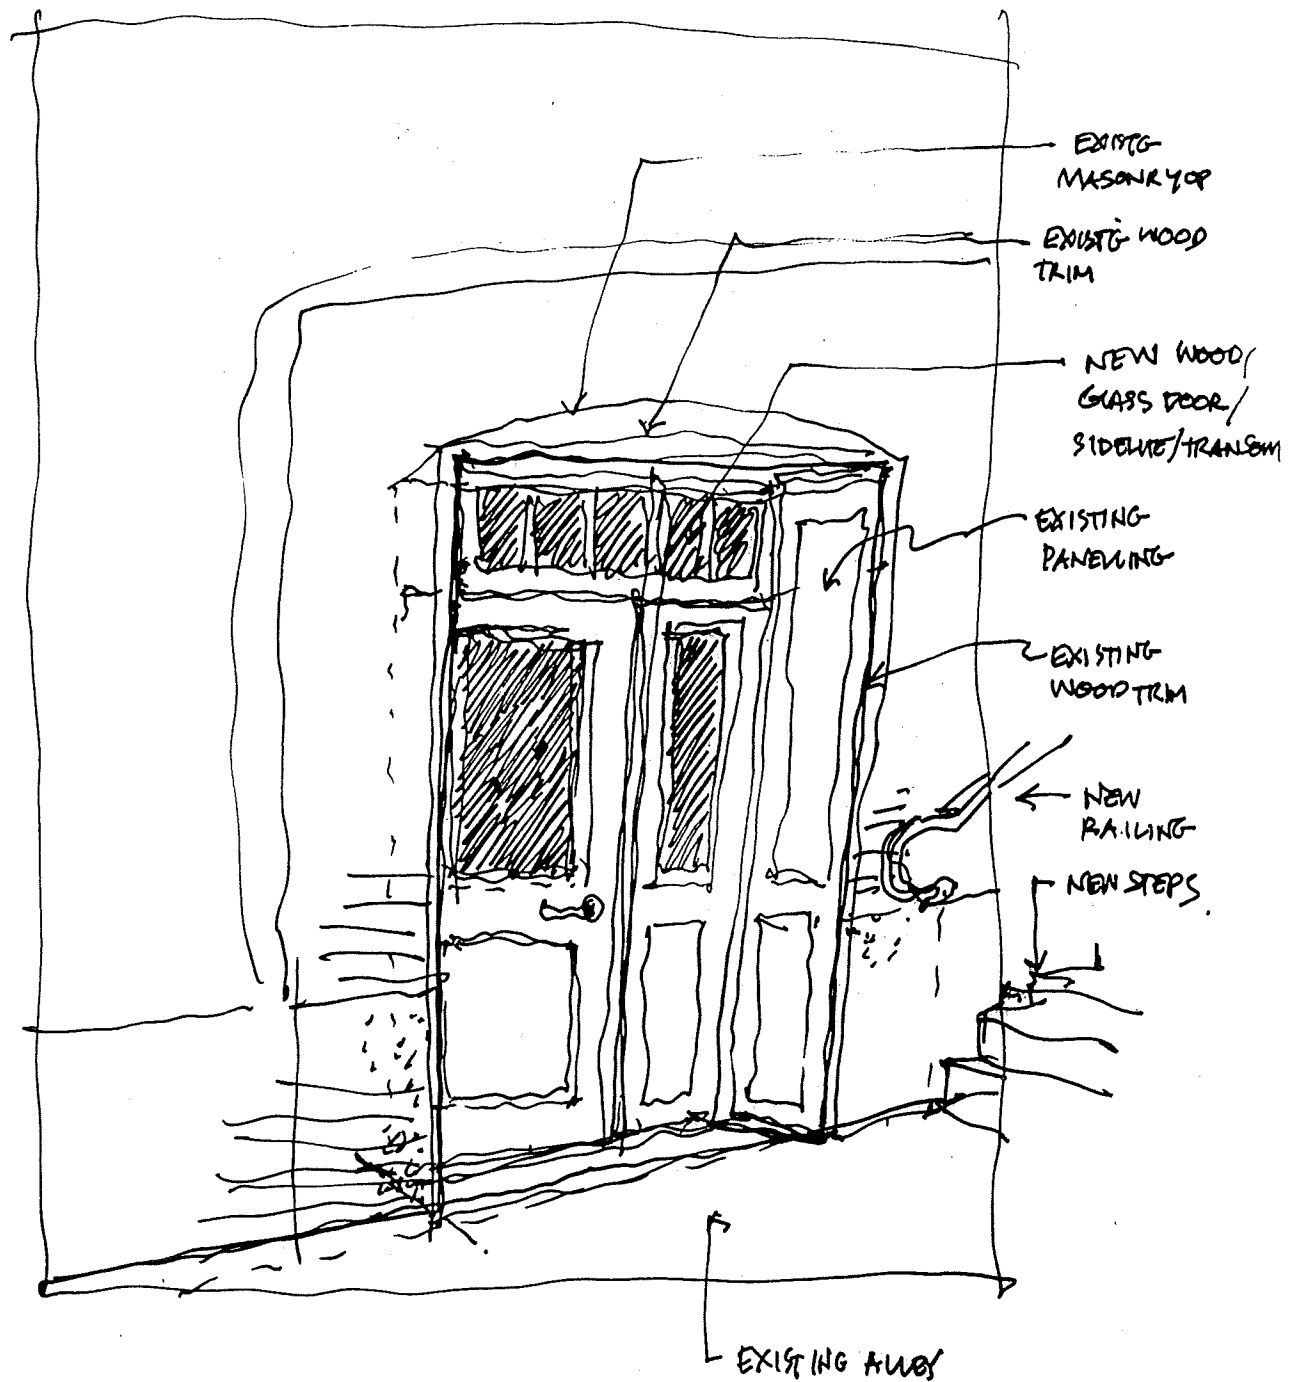 EXISTG
MASONRY OP
EXISTG WOOD
TRIM
NEW WOOD/
GLASS DOOR/
SIDELITE/TRANSOM
EXISTING
PANELLING
EXISTING
WOOD TRIM
NEW
RAILING
NEW STEPS.
EXISTING ALLEY